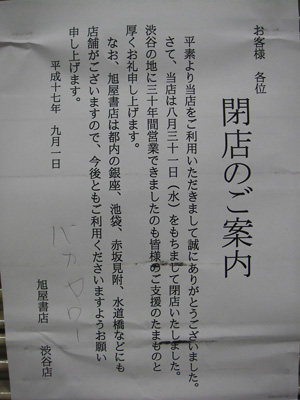 お客様　各位
閉店のご案内
平素より当店をご利用いただきまして誠にありがとうございました。
さて、当店は八月三十一日（水）をもちまして閉店いたしました。
渋谷の地に三十年間営業できましたのも皆様のご支援のたまものと
厚くお礼申し上げます。
なお、旭屋書店は都内の銀座、池袋、赤坂見附、水道橋などにも
店舗がございますので、今後ともご利用くださいますようお願い
申し上げます。
平成十七年　九月一日
バカヤロー
旭屋書店　渋谷店